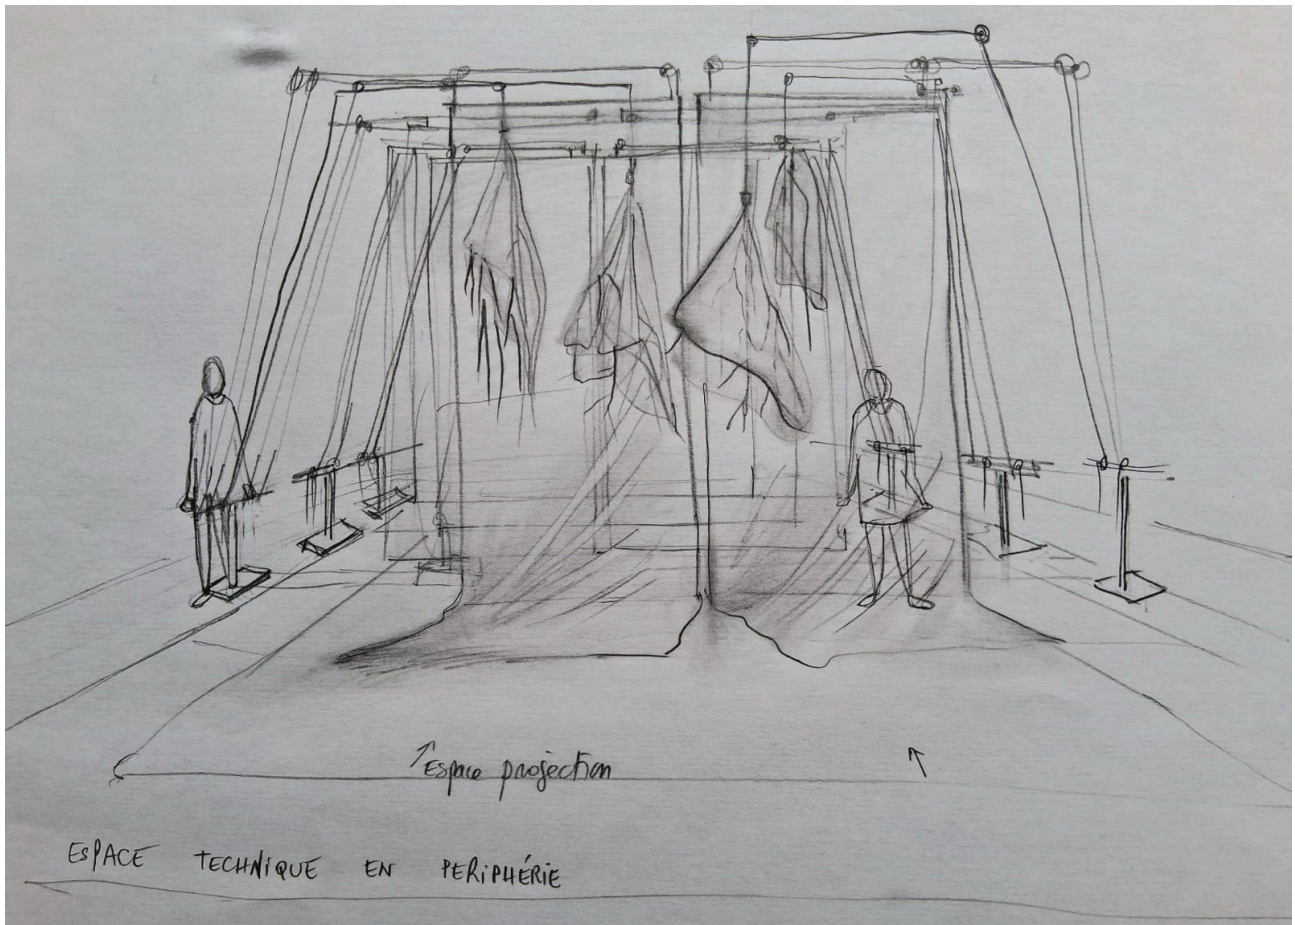 Espace projection
ESPACE TECHNIQUE EN PERIPHÉRIE